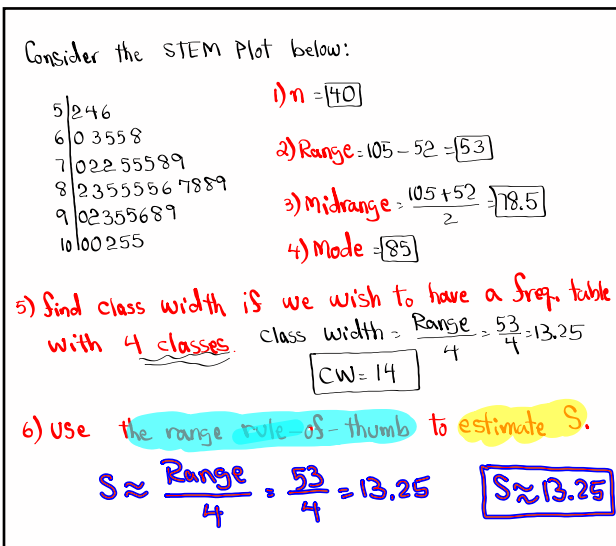 Consider the STEM Plot below:
5|246
6|03558
7|02255589
8|23555567889
9|02355689
10|00255
1) n = 40
2) Range = 105 - 52 = 53
3) Midrange = (105+52)/2 = 78.5
4) Mode = 85
5) find class width if we wish to have a freq. table
with 4 classes. Class width = Range/4 = 53/4 = 13.25
CW = 14
6) Use the range rule-of-thumb to estimate S.
S ≈ Range/4 = 53/4 = 13.25 S ≈ 13.25